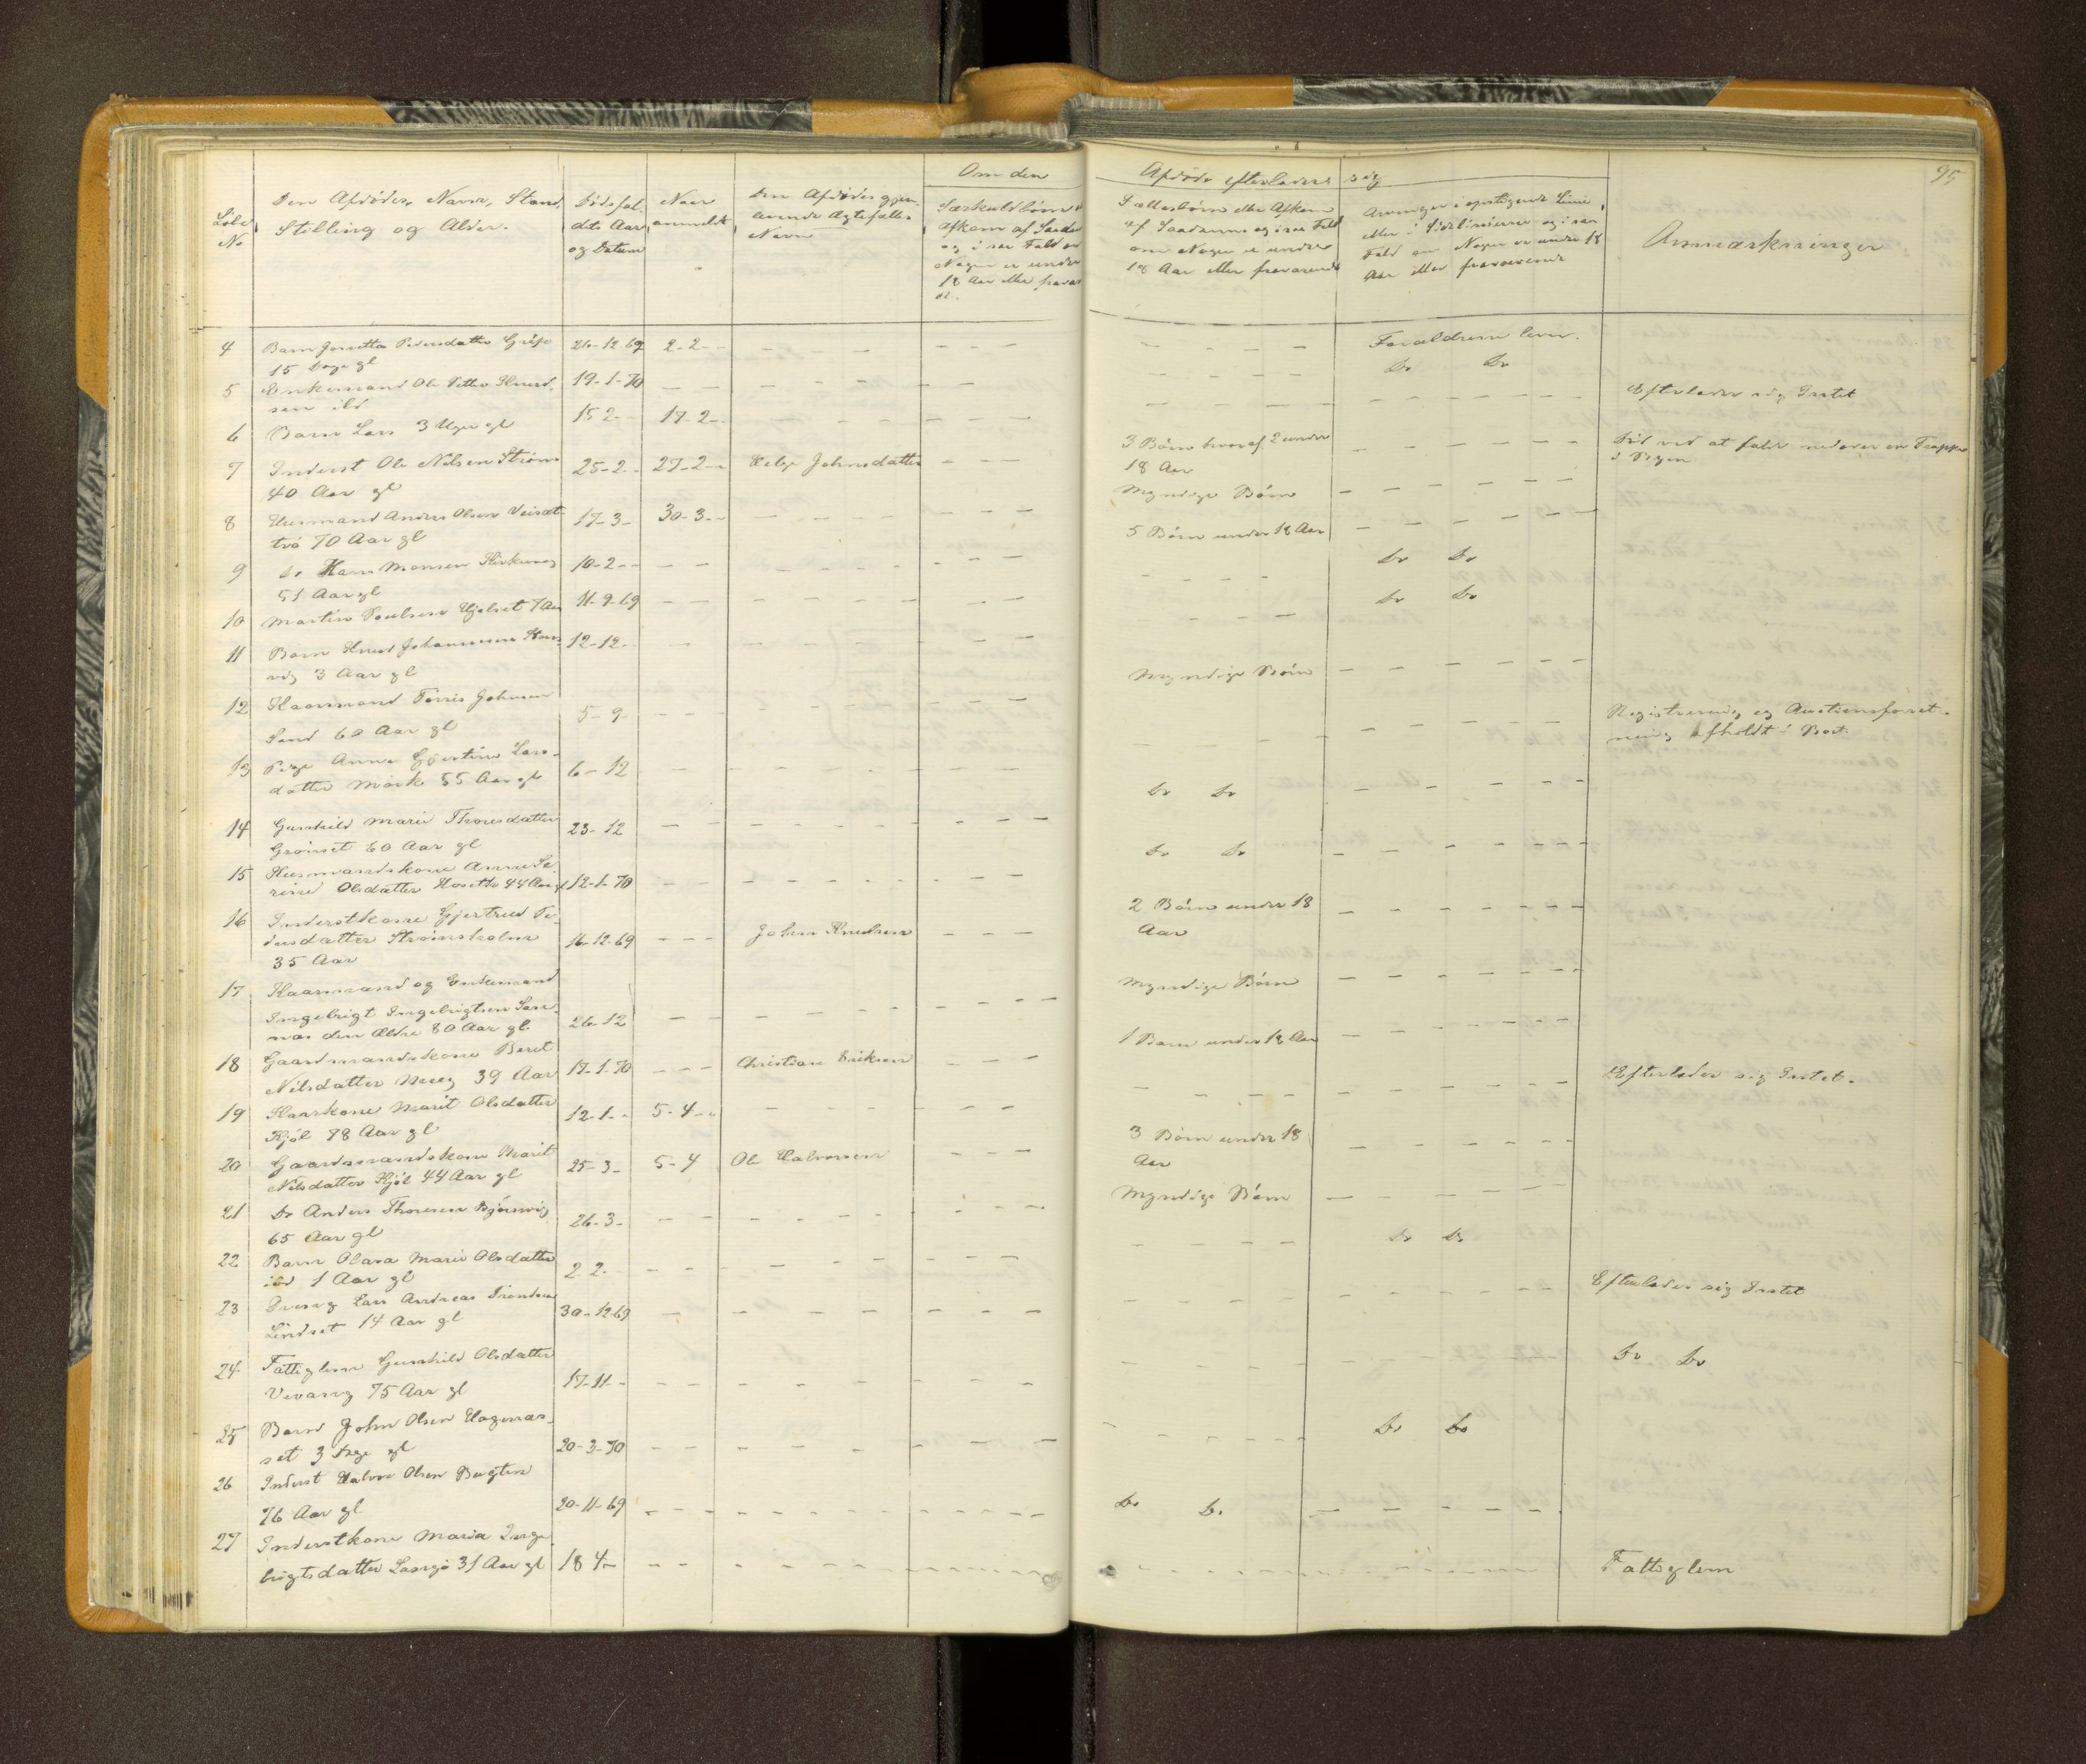 95
Om den Afdøde efterlader sig
Løbe No
Den Afdødes Navn, Stand,
Stilling og Alder.
Dødsfal-
dets Aar
og Datum
Naar
anmeldt
Den Afdødes gjen-
levende Ægtefælles
Navn
Særkuldbørn
Afkom af Saadan
og i saa Fald om
Nogen er under
18 Aar eller fravæ
Fællesbørn eller Afkom
af Saadanne og i saa Fald
om Nogen er under
18 Aar eller fraværende
Arvinger i opstigende Linie,
eller i Sidelinierne og i saa
Fald om Nogen er under 18
Aar eller fraværende
Anmærkninger
4 Barn Pedersdatter Grip 26-12 69 2-2- Forældrene lever.
15 Dage gl
5 Enkemand Ole Petter Knud- 19-1-70 Do Do
sen ibd Efterlader sig Intet
6 Barn Lars 3 Uger gl 15 2- 17-2-
7 Inderst Ole Nilsen Strøm 25-2- 27-2- Johnsdatter 3 Børn hvoraf 2 under Død ved at falde nedover en Trappe
40 Aar gl 18 Aar i Byen
8 Husmand Anders Olsen 17-3- 30-3- Myndige Børn
70 Aar gl
9 Do Hans Monsen 10-2- 5 Børn under 18 Aar
51 Aar gl
10 Martin Poulsen 7 Aar 11-9-69 Do Do
11 Barn Knud Johannesen 12-12- Do Do
3 Aar gl
12 Kaarmand Johnsen 5-9- Myndige Børn
Sand 60 Aar gl
13 Pige Anne Gjertine Lars- 6-12 Registrering og Auctionsforret-
datter Mork 55 Aar gl ning afholdt i Boet.
14 Gunhild Marie Thoresdatter 23-12 Do Do
Grønset 60 Aar gl
15 Husmandskone Anne Se- 12-1-70 Do Do
rine Olsdatter Hoseth 44 Aar gl
16 Inderstkone Gjertrud Pe- 16-12-69 John Knudsen 2 Børn under 18
dersdatter Strømsholm Aar
35 Aar
17 Kaarmand og Enkemand 26-12 Myndige Børn
Ingebrigt Ingebrigtsen
den Ældre 80 Aar gl.
18 Gaardmandskone Beret 17-1-70 Christian Eriksen 1 Barn under 18 Aar
Nilsdatter 39 Aar
19 Kaarkone Marit Olsdatter 12-1- 5-4- Efterlader sig Intet.
Kjøl 78 Aar gl
20 Gaardmandskone Marit 25-3- 5-4 Ole Halvorsen 3 Børn under 18
Nilsdatter Kjøl 44 Aar gl Aar
21 Do Anders Thoresen Bjørnvig 26-3- Myndige Børn
65 Aar gl
22 Barn Olava Marie Olsdatter 2 2- Do Do
ibd 1 Aar gl
23 Lars Andreas 30-12 69 Efterlader sig Intet
Lindset 14 Aar gl
24 Fattiglem Gunhild Olsdatter 17-11- Do Do
Vevang 75 Aar gl
25 Barn John Olsen 20-3-70 Do Do
set 3 Dage gl
26 Inderst Halvor Olsen 20-11-69 Do Do
76 Aar gl
27 Inderstkone Maria Inge- 18 4- Fattiglem
brigtsdatter 31 Aar gl